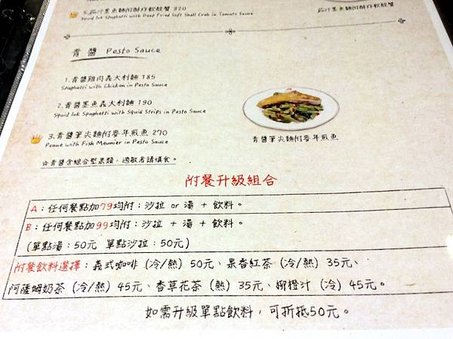 5.茄汁墨魚麵附酥炸軟殼蟹 320
Squid Ink Spaghetti with Deep Fried Soft Shell Crab in Tomato Sauce
茄汁墨魚麵附酥炸軟殼蟹
青醬 Pesto Sauce
1.青醬雞肉義大利麵 185
Spaghetti with Chicken in Pesto Sauce
2.青醬墨魚義大利麵 190
Squid Ink Spaghetti with Squid Strips in Pesto Sauce
3.青醬筆尖麵附麥年煎魚 270
Penne with Fish Meuniere in Pesto Sauce
青醬筆尖麵附麥年煎魚
☆青醬含綜合堅果類，過敏者請慎食。
附餐升級組合
A：任何餐點加79均附：沙拉 or 湯 + 飲料。
B：任何餐點加99均附：沙拉 + 湯 + 飲料。
(單點湯：50元 單點沙拉：50元)
附餐飲料選擇：義式咖啡 (冷/熱) 50元、果香紅茶 (冷/熱) 35元、
阿薩姆奶茶 (冷/熱) 45元、香草花茶 (熱) 35元、柳橙汁 (冷) 45元。
如需升級單點飲料，可折抵50元。